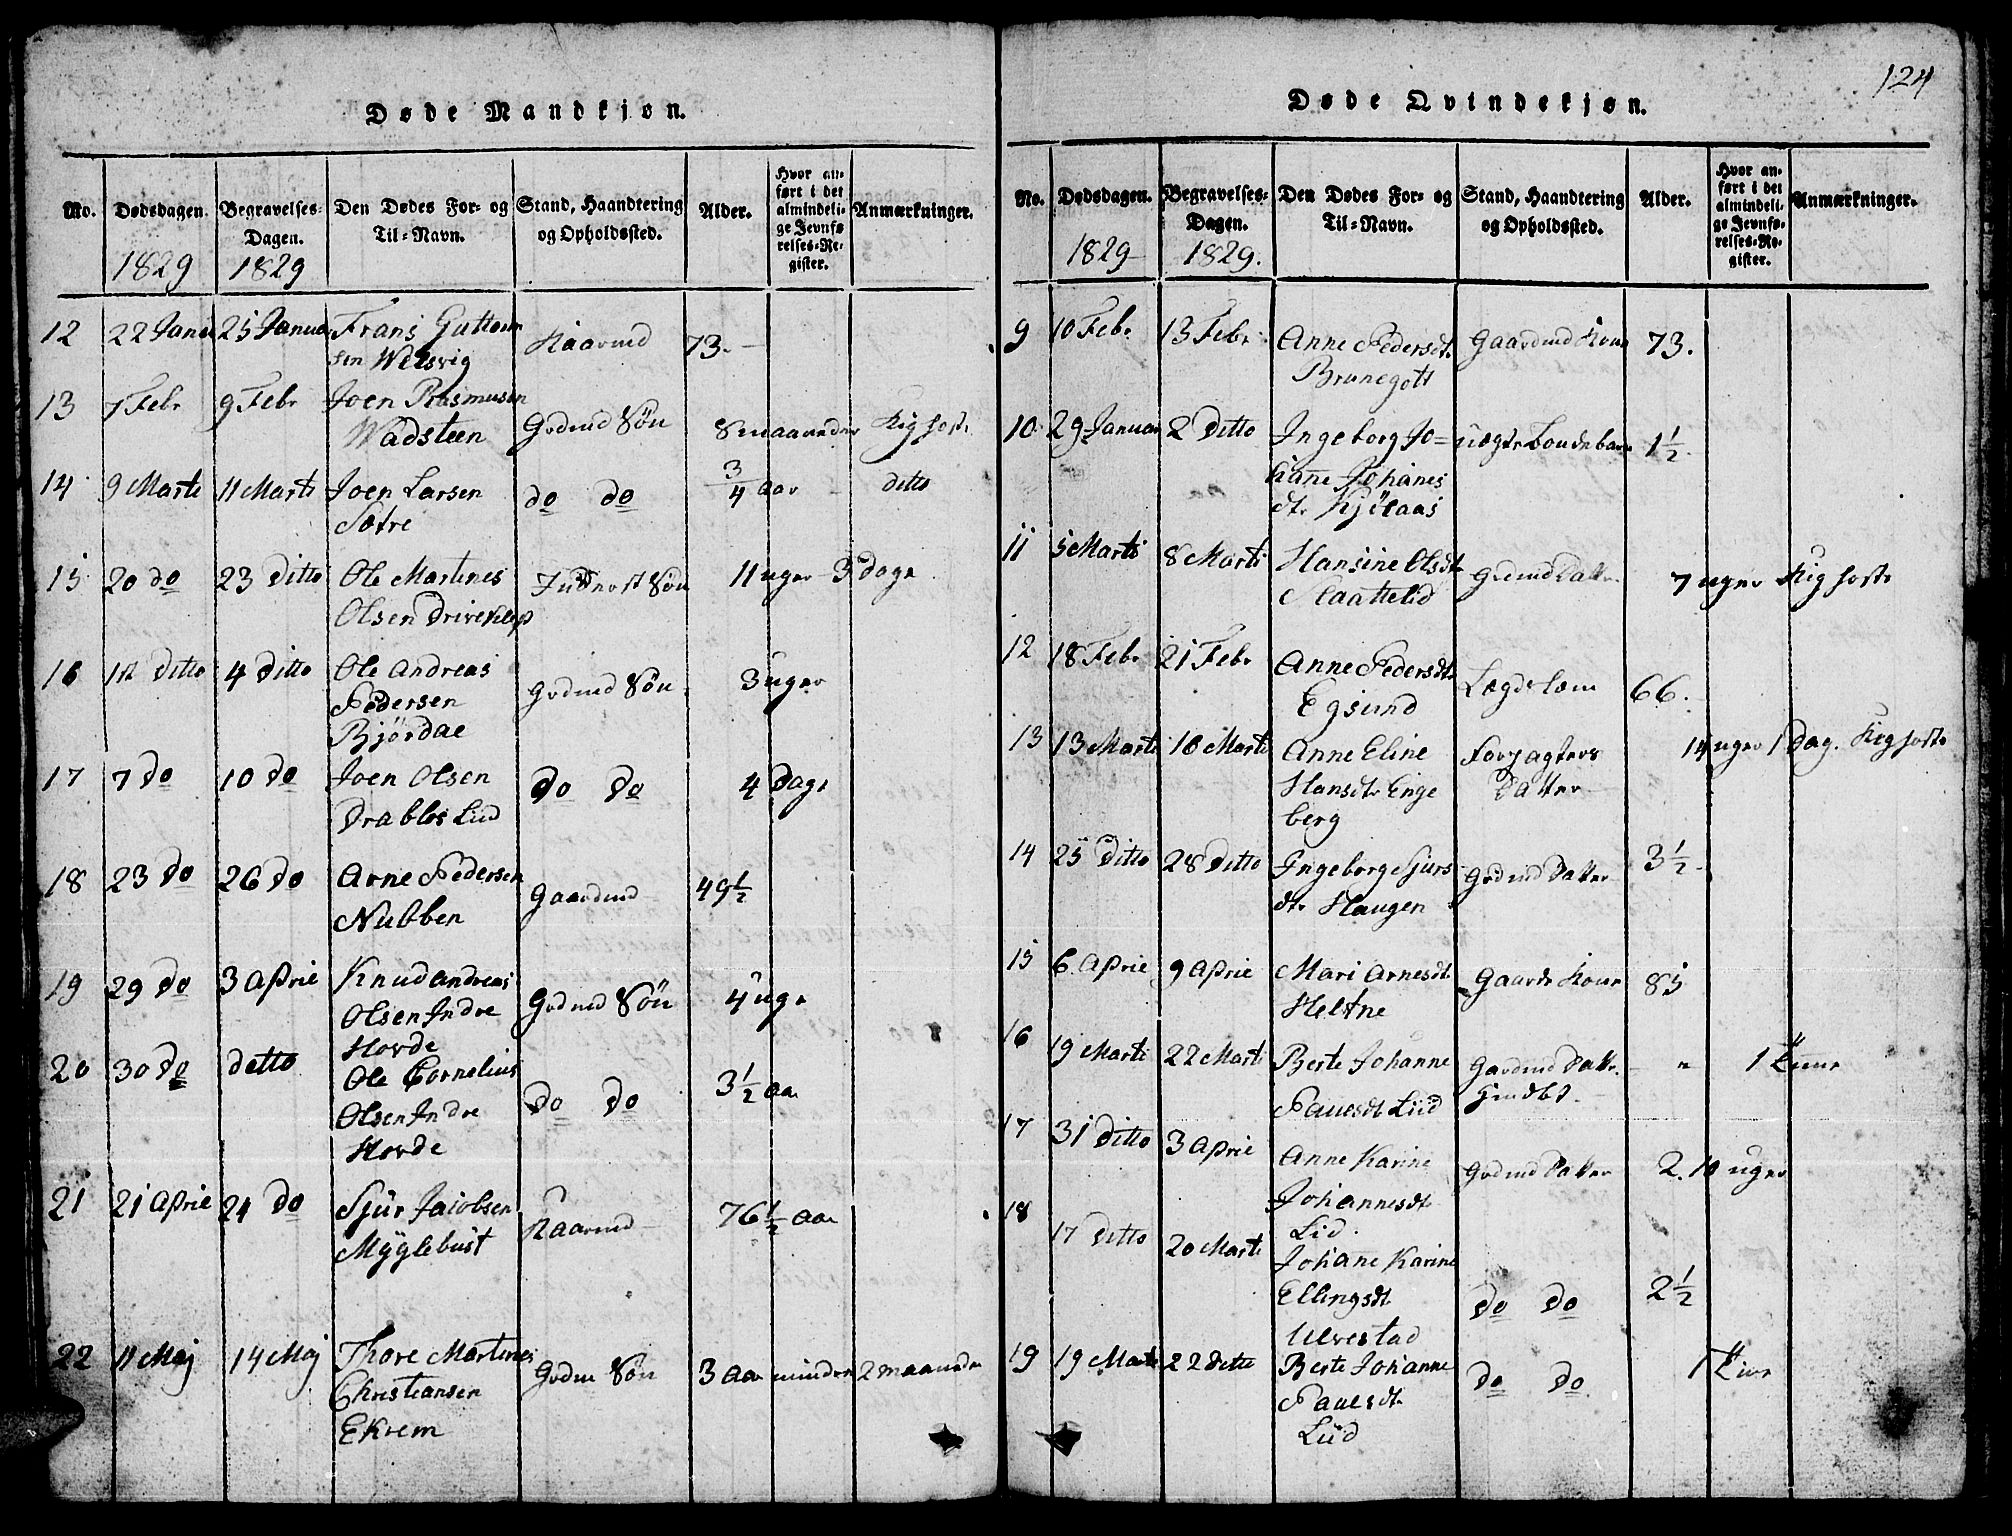 Døde Mandkjøn.
No. Dødsdagen. Begravelses-Dagen. Den Dødes For- og Til-Navn. Stand, Haandtering og Opholdssted. Alder. Hvor anført i det almindelige Jevnførelses-Register. Anmærkninger.
1829 1829
12 22 Janu 25 Janua Frans Guttorm
sen Welsvig Kaarmd 73.
13 7 Febr 9 Febr Joen Rasmusen
Wadsteen Grdmd Søn 8 maaneder Kighoste
14 9 Marti 11 Marti Joen Larsen
Sætre do do 3/4 aar ditto
15 20 do 23 Ditto Ole Martines
Olsen Driveklep Søn 11 uger 3 dage
16 1st Ditto 4 Ditto Ole Andreas
Pedersen
Bjørdal Grdmd Søn 3 uger
17 7 Do 10 Do Joen Olsen
Drablos Lud Do Do 4 Dage
18 23 Do 26 Do Arne Pedersen
Nubben Gaardmd 49 1/2
19 29 Do 3 April Knud Andreas
Olsen Indre
Hovde Grdmd Søn 4 uge
20 30 Do detto Ole Cornelius
Olsen Indre
Hovde Do Do 3 1/2 aa
21 21 April 24 Do Sjur Jacobsen
Myglebust Kaarmd 76 1/2 aar
22 11 Maj 14 Maj Thore Martines
Christiansen
Ekrem Grdm Søn 3 aar minder 2 maaneder
124
Døde Qvindekjøn.
No. Dødsdagen. Begravelses-Dagen. Den Dødes For- og Til-Navn. Stand, Haandtering og Opholdssted. Alder. Hvor anført i det almindelige Jevnførelses-Register. Anmærkninger.
1829 1829.
9 10 Febr 13 Febr Anne Pedersdt.
Brunegott Gaardmd Kone 73.
10 29 Januar 2 Ditto Ingeborg Jo=
hane Johanes
dtr Kjølaas uægte Bondebarn 1 1/2
11 5 Marti 8 Marti Hansine Olsdt
Slaattelid Grdmd Datter 7 uger Kighoste
12 18 Febr 21 Febr Anne Pedersdt.
Egsund Lægdslem 66.
13 13 Marti 16 Marti Anne Eline
Hansdtr Enge
berg Forpagters
Datter 14 uger 1 Dag. Kighoste
14 25 Ditto 28 Ditto Ingeborg Sjurs
dtr Haugen Grdmd Datter 3 1/2
15 6 April 9 April Mari Arnesdt.
Heltne Gaards Kone 85
16 19 Marti 22 Marti Berte Johanne
Paulsdt Liid Gardmd Datter
hjemdbt. " 1 Time
17 31 Ditto 3 April Anne Karine
Johannesdt
Lid. Grdmd Datter 2. 10 uger
18 17 Ditto 20 Marti Johane Karine
Ellingsdt
Ulvestad Do Do 2 1/2
19 19 Marti 22 Ditto Berte Johanne
Paulsdt.
Liid Do Do